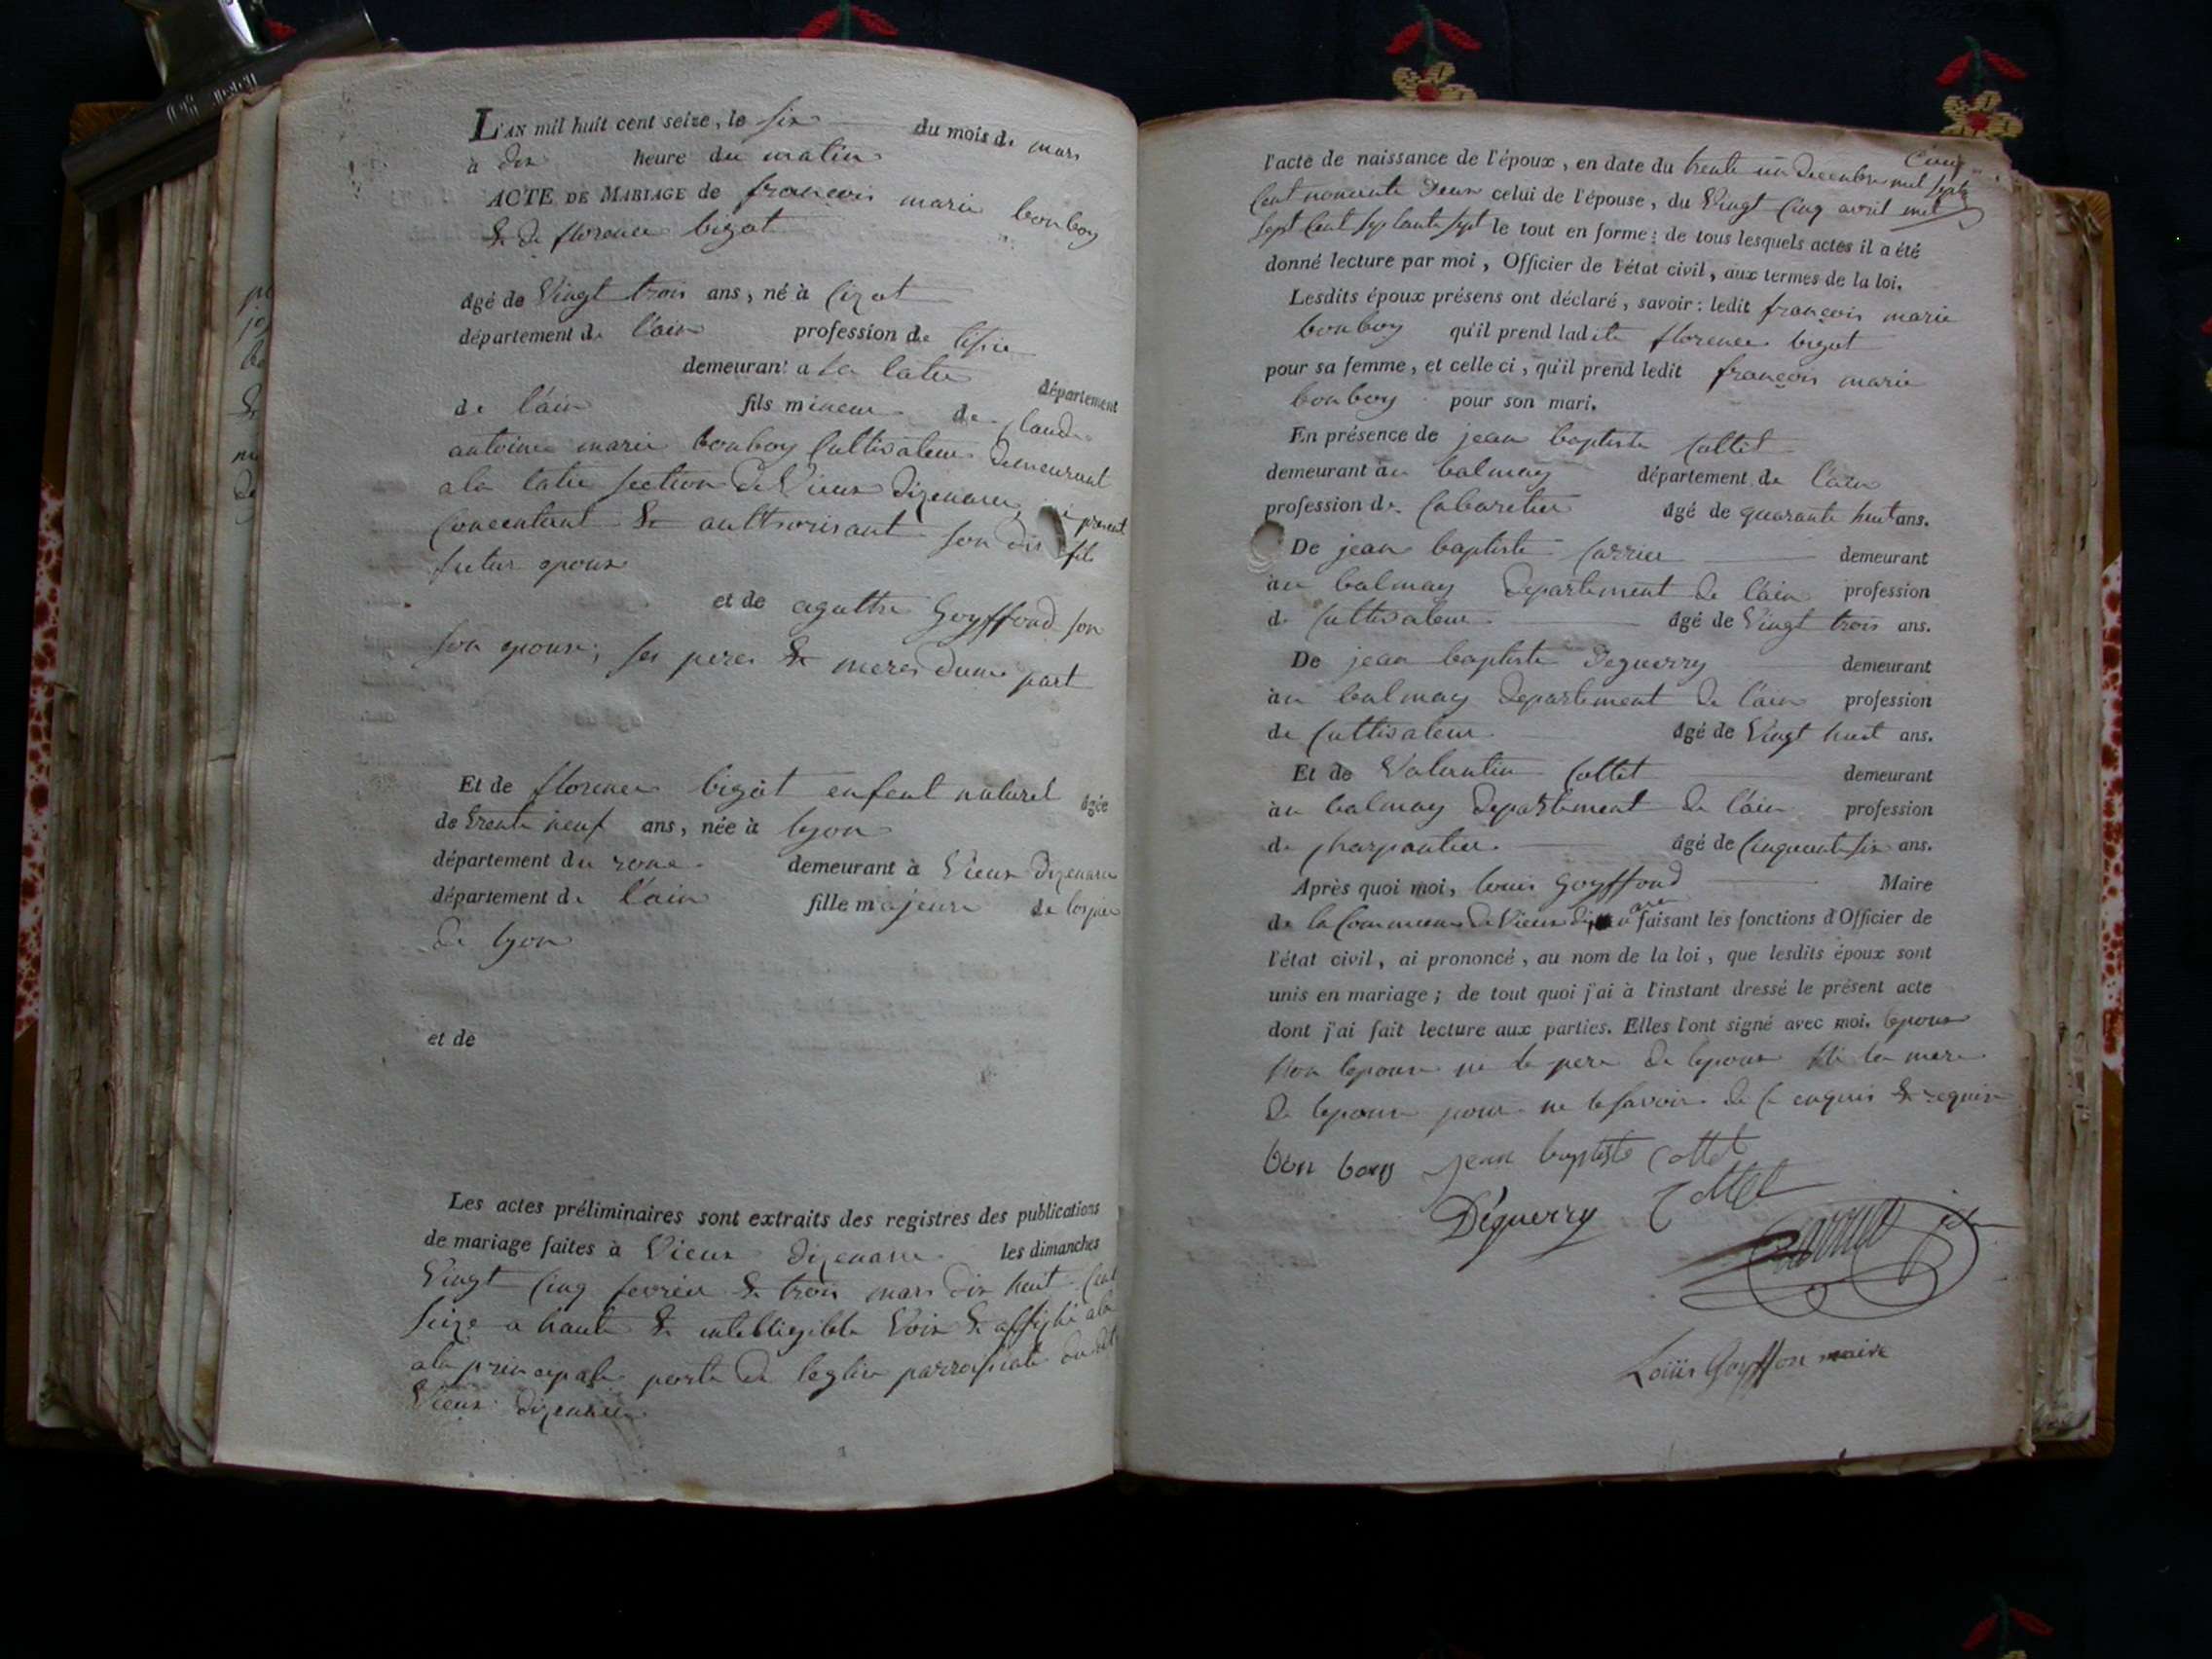 L'AN mil huit cent seize, le six du mois de mars
à dix heure du matin
ACTE DE MARIAGE de françois marie bonboy
& de florence bigot
âgé de Vingt trois ans, né à Cizot
département de l'ain profession de
demeurant a la latie département
de l'ain fils mineur de Claude
antoine marie bonboy Cultivateur demeurant
a la latie section de Vieux dizenave, present
Concentant & authorisant son dit fils
futur epoux
et de agathe Goyffond son
son epouse, ses peres & meres dune part
Et de florence bigot enfent naturel âgée
de trente neuf ans, née à lyon
département du rone demeurant à Vieux dizenave
département de l'ain fille majeure de lospice
de lyon
et de
Les actes préliminaires sont extraits des registres des publications
de mariage faites à Vieux dizenave les dimanches
Vingt Cinq fevrier & trois mars dix huit Cent
Seize a haute & intelligible Voix & affiché a la
a la principale porte de leglise parroissiale du dit
Vieux dizenave
l'acte de naissance de l'époux, en date du trente un decembre mil sept
Cent nonante deux celui de l'épouse, du Vingt Cinq avril mil
sept Cent septante sept le tout en forme: de tous lesquels actes il a été
donné lecture par moi, Officier de l'état civil, aux termes de la loi.
Lesdits époux présens ont déclaré, savoir: ledit françois marie
bonboy qu'il prend ladite florence bigot
pour sa femme, et celle ci, qu'il prend ledit françois marie
bonboy pour son mari.
En présence de jean baptiste Cottet
demeurant au balmay département de l'ain
profession de Cabaretier âgé de quarante huit ans.
De jean baptiste Carrier demeurant
au balmay departement de l'ain profession
de Cultivateur âgé de Vingt trois ans.
De jean baptiste deguerry demeurant
au balmay departement de l'ain profession
de Cultivateur âgé de Vingt huit ans.
Et de Valentin Cottet demeurant
au balmay departement de l'ain profession
de Charpantier âgé de Cinquante six ans.
Après quoi moi, louis Goyffond Maire
de la Commune de Vieux faisant les fonctions d'Officier de
l'état civil, ai prononcé, au nom de la loi, que lesdits époux sont
unis en mariage; de tout quoi j'ai à l'instant dressé le présent acte
dont j'ai fait lecture aux parties. Elles l'ont signé avec moi. lepoux
Non lepouse ni le pere de lepoux Ni la mere
de lepoux pour ne le savoir de Ce enquis & requis
bon boy jean baptiste Cottet
Déguerry Cottet
Loüis Goyffon maire